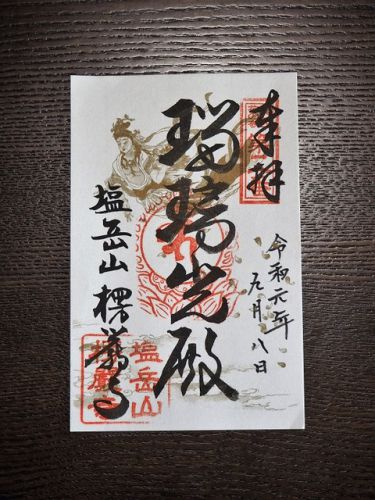 奉拝
令和元年
九月八日
瑠璃光殿
塩岳山 楞嚴寺
塩岳山